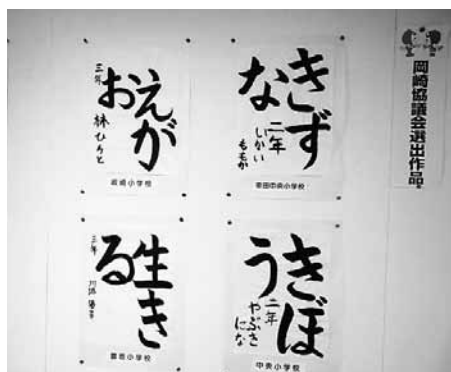 岡崎協議会選出作品
きず
な
二年
しかい
ももか
中央小学校
えが
お
三年
林ひろと
小学校
きぼ
う
二年
やぶさ
にな
中央小学校
生き
る
三年
小学校